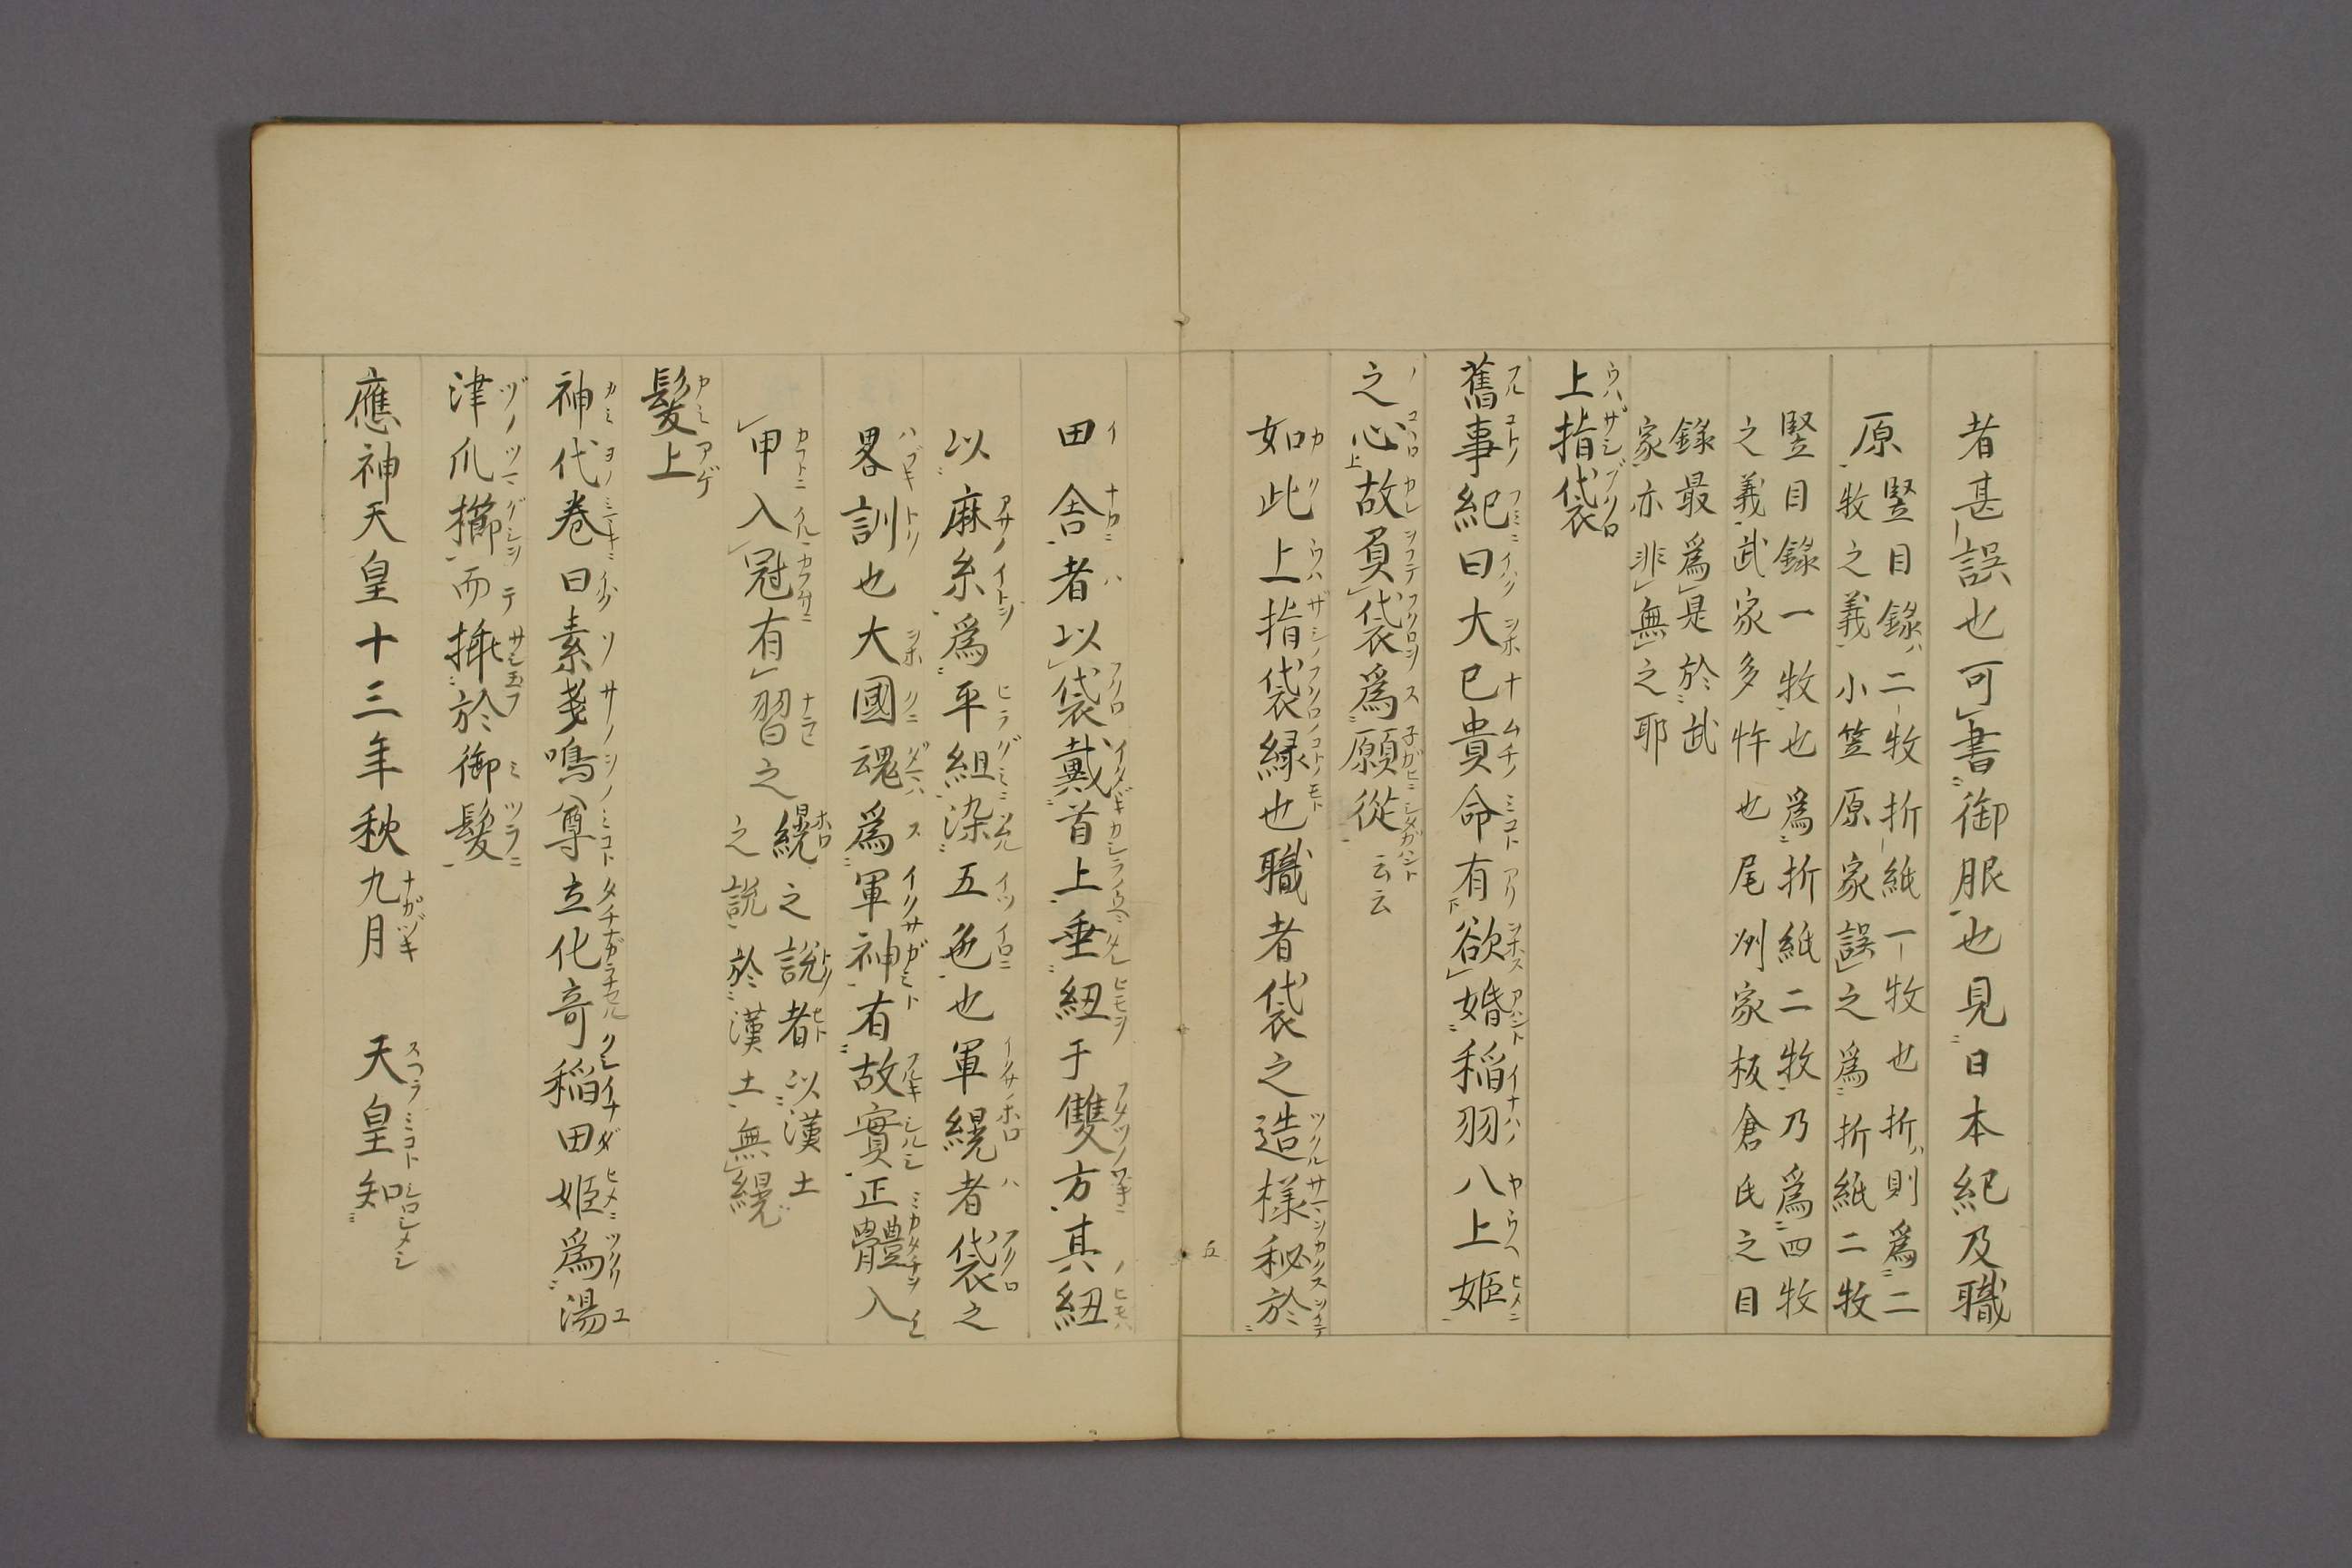 者甚誤也可書御服也見日本紀及職
原
竪目錄ハ二牧折紙一牧也折ハ則爲二
牧之義小笠原家誤之爲折紙二牧
竪目錄一牧也爲折紙二牧乃爲四牧
之義武家多忤也尾州家板倉氏之目
錄最爲是於武
家亦非無之耶
上指袋
舊事紀曰大已貴命有欲婚稲羽八上姫
之心故負袋爲願從云云
如此上指袋縁也職者袋之造樣秘於
五
田舎者以袋戴首上垂紐于雙方其紐
以麻糸爲平組染五色也軍縨者袋之
畧訓也大國魂爲軍神有故實正體入
甲入冠有習之
縨之說者以漢土
之說於漢土無縨
髮上
神代卷曰素戔嗚尊立化奇稲田姫爲湯
津爪擳而揷於御髮
應神天皇十三年秋九月　天皇知